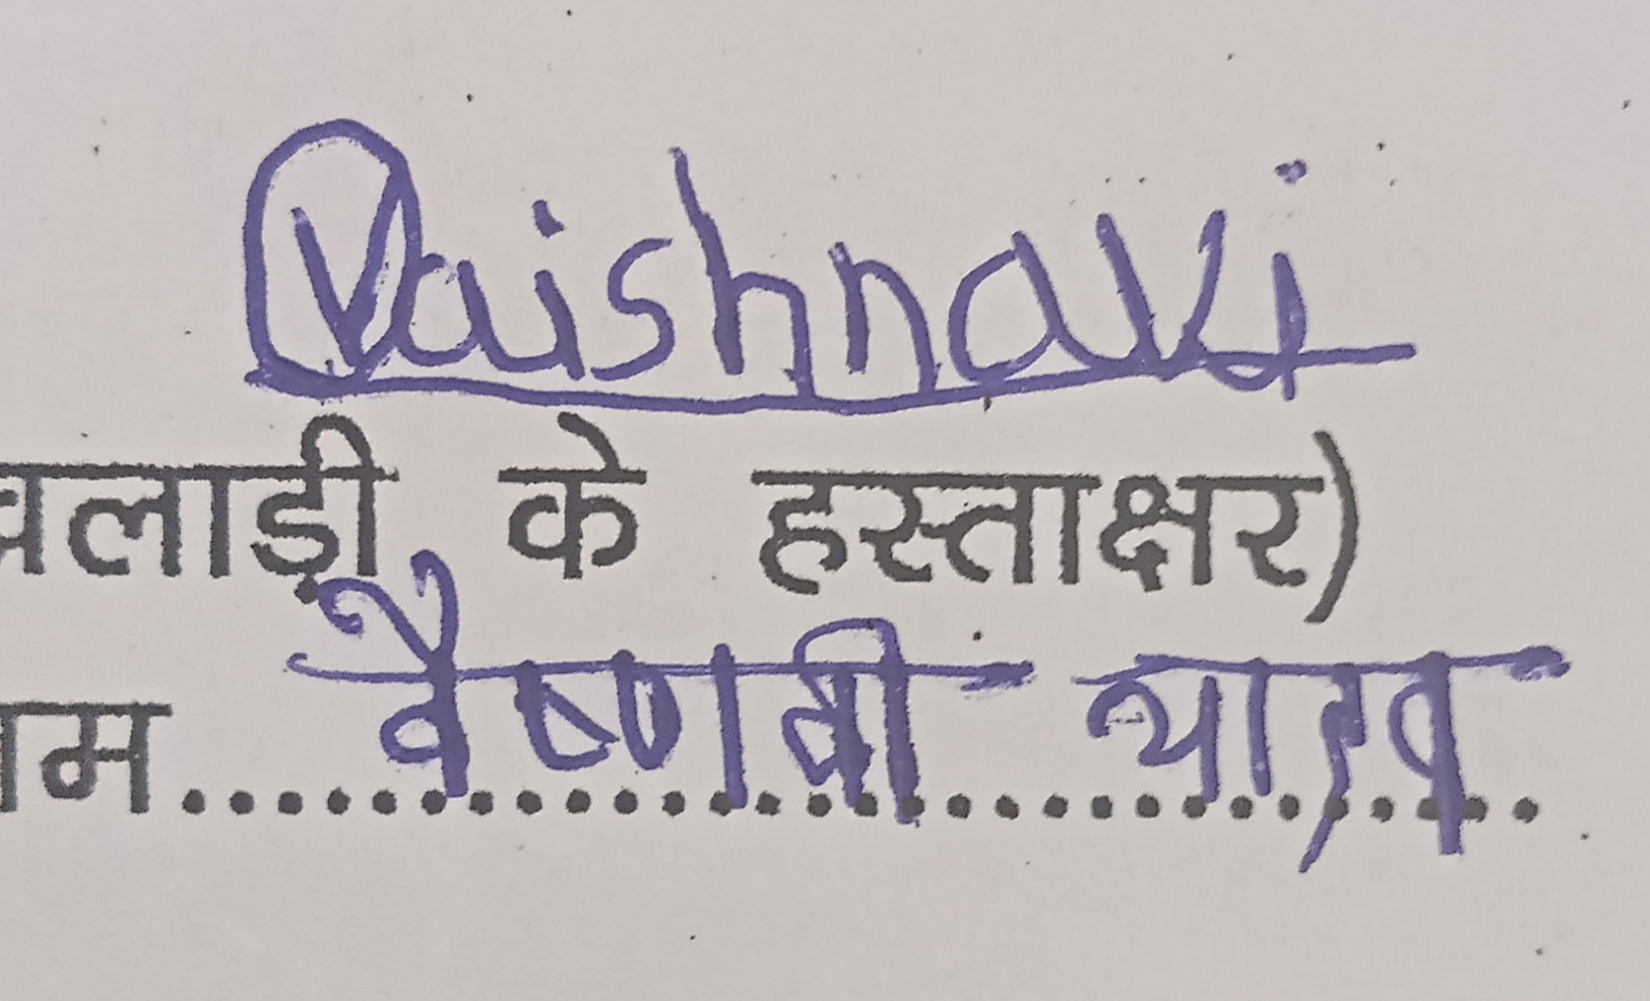 Vaishnavi
खलाड़ी के हस्ताक्षर)
नाम.............वैष्णवी यादव.......